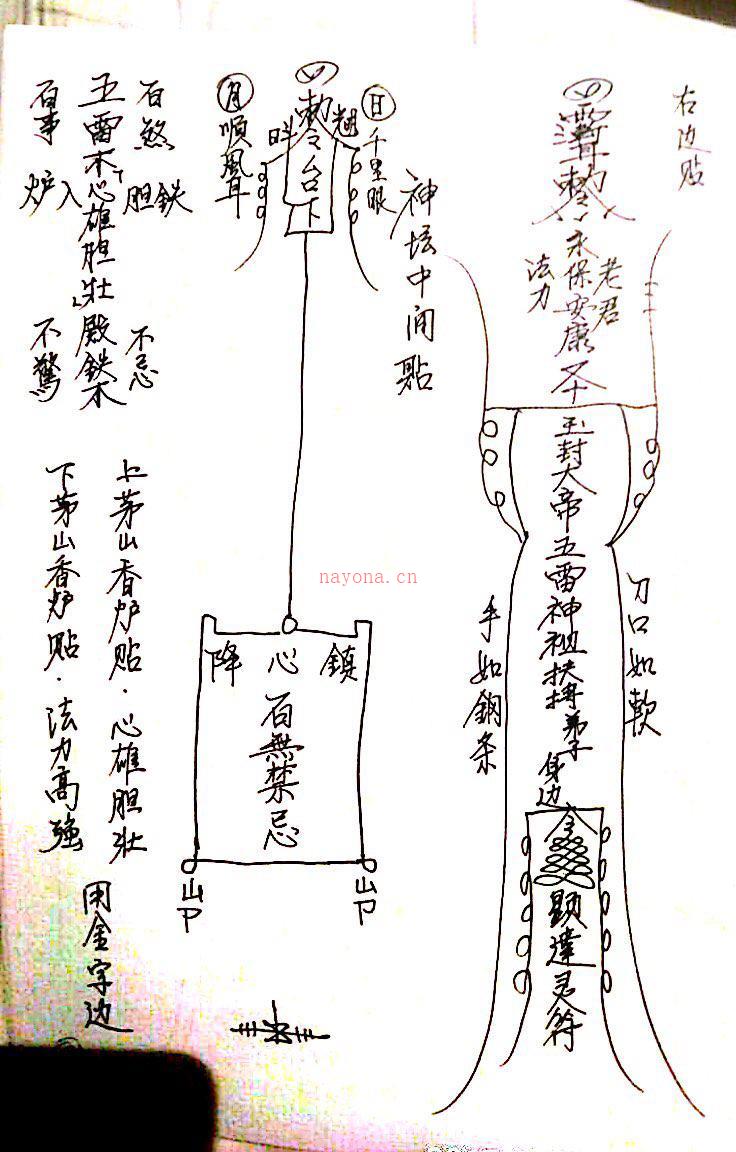 右边贴
敕令
老君
法力
永保安康
玉封大帝五雷神祖扶持弟子
身边
刀口如軟
手如鋼条
顕達灵符
神坛中间點
敕令台下
日千里眼
月順風耳
降心鎮
百無禁忌
百煞
五雷木心雄胆壮殿鉄木
百事
胆鉄
炉入
不忌
不驚
上茅山香炉贴·心雄胆壮
下茅山香炉贴·法力高強
用金字边
nayona.cn